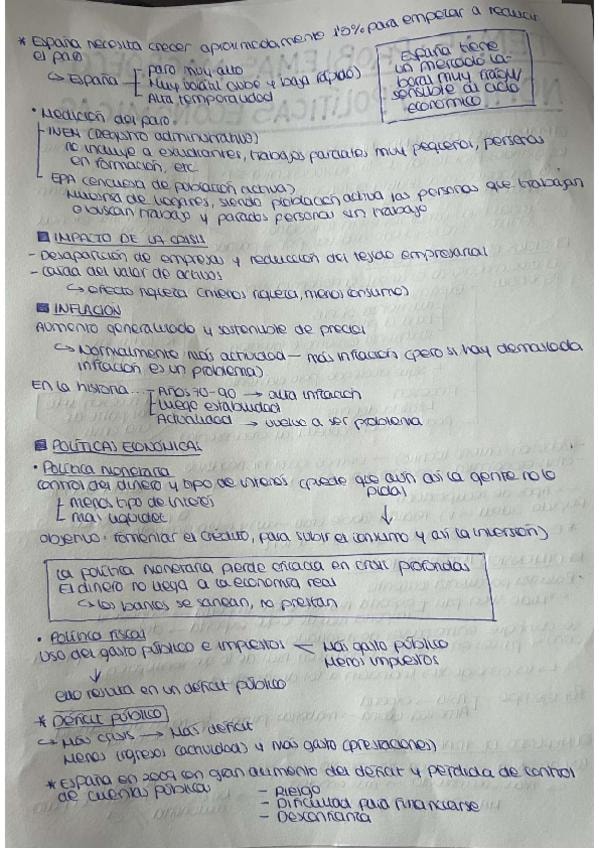 * España necesita crecer aproximadamente 1'5% para empezar a reducir
el paro
↳ España - paro muy alto
- Muy basial (sube y baja rápido)
- Alta temporalidad
España tiene
un mercado la-
boral muy frágil y
sensible al ciclo
económico
• Medición del paro
- INEM (registro administrativo)
no incluye a estudiantes, trabajos parciales muy pequeños, personas
en formación, etc
- EPA (encuesta de población activa)
Muestra de hogares, siendo población activa las personas que trabajan
o buscan trabajo y parados personas sin trabajo
IMPACTO DE LA CRISIS
- Desaparición de empresas y reducción del tejido empresarial
- caída del valor de activos
↳ efecto riqueza (menos riqueza, menos consumo)
INFLACIÓN
Aumento generalizado y sostenible de precios
↳ Normalmente más actividad — más inflación (pero si hay demasiada
inflación es un problema)
En la historia... - Años 70-90 → alta inflación
- Luego estabilidad
- Actualidad → vuelve a ser problema
POLÍTICAS ECONÓMICAS
• Política monetaria
control del dinero y tipo de interés (puede que aún así la gente no lo
pida)
- menos tipo de interés
- más liquidez
↓
objetivo: fomentar el crédito, para subir el consumo y así la inversión)
La política monetaria pierde eficacia en crisis profundas
El dinero no llega a la economía real
↳ los bancos se sanean, no prestan
• Política fiscal
Uso del gasto público e impuestos < Más gasto público
Menos impuestos
↓
ello resulta en un déficit público
* Déficit público
↳ Más crisis → Más déficit
Menos ingresos (actividad) y más gasto (prestaciones)
* España en 2009 con gran aumento del déficit y pérdida de control
de cuentas públicas - Riesgo
- Dificultad para financiarse
- Desconfianza